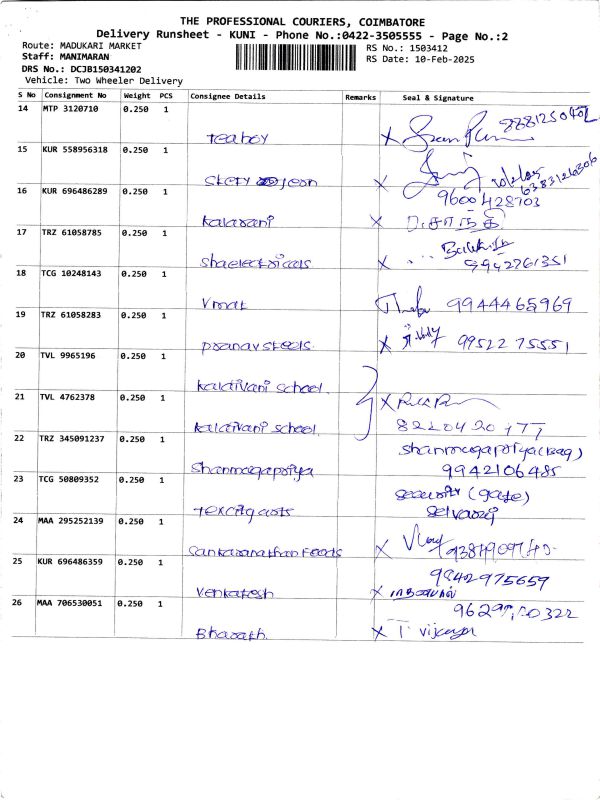 THE PROFESSIONAL COURIERS, COIMBATORE
Delivery Runsheet - KUNI - Phone No.:0422-3505555 - Page No.:2
Route: MADUKARI MARKET
RS No.: 1503412
Staff: MANIMARAN
RS Date: 10-Feb-2025
DRS No.: DCJB150341202
Vehicle: Two Wheeler Delivery
S No Consignment No Weight PCS Consignee Details Remarks Seal & Signature
14 MTP 3120710 0.250 1
teaboy X
15 KUR 558956318 0.250 1
X 6383126306
16 KUR 696486289 0.250 1 9600428703
kalarani X
17 TRZ 61058785 0.250 1
shaelectricals X 9942761351
18 TCG 10248143 0.250 1
Vmat 9944465969
19 TRZ 61058283 0.250 1
pranav steels. X 99522 75551
20 TVL 9965196 0.250 1
kalaivani school
21 TVL 4762378 0.250 1 X
kalaivani school. 8220420477
22 TRZ 345091237 0.250 1 shanmugapriya
Shanmugapriya 9942106485
23 TCG 50809352 0.250 1 security (gate)
selvaraj
24 MAA 295252139 0.250 1
Sankaranathan Foods X
25 KUR 696486359 0.250 1 9842975659
Venkatesh X
26 MAA 706530051 0.250 1
Bharath. X T vijaya